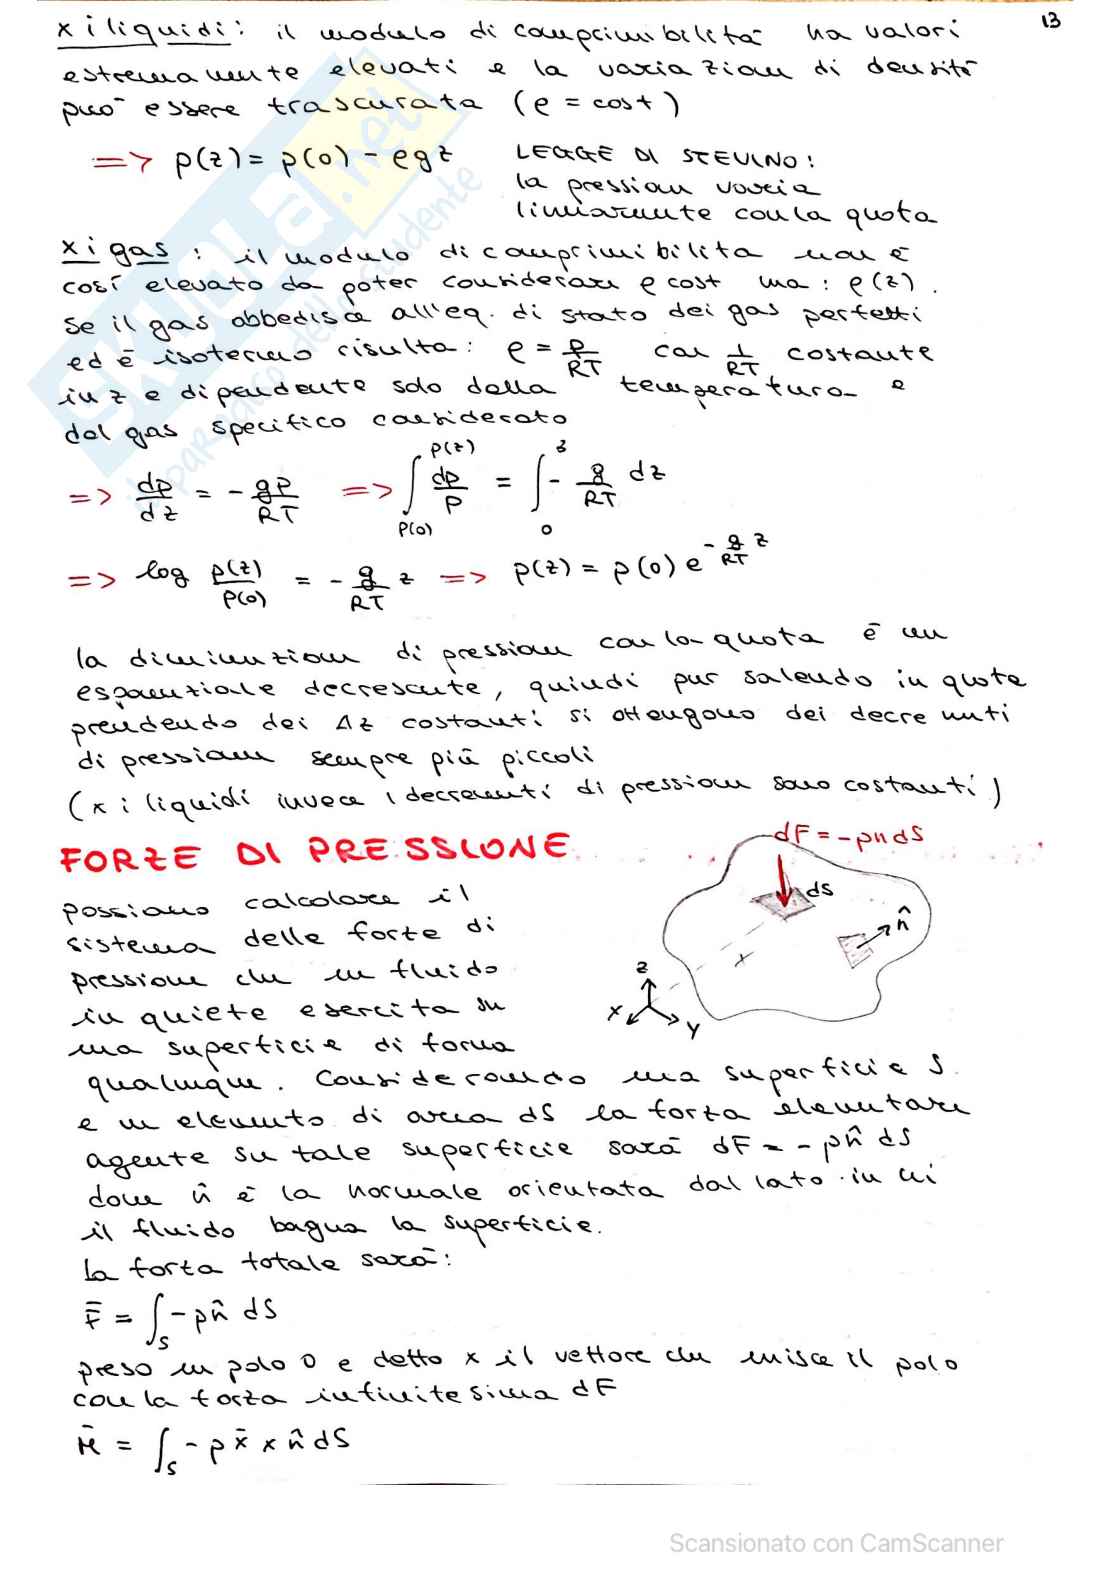 13
x i liquidi: il modulo di comprimibilità ha valori
estremamente elevati e la variazione di densità
può essere trascurata (ρ = cost)
=> p(z) = p(0) - ρgz LEGGE DI STEVINO:
la pressione varia
linearmente con la quota
x i gas: il modulo di comprimibilità non è
così elevato da poter considerare ρ cost ma: ρ(z).
Se il gas obbedisce all'eq. di stato dei gas perfetti
ed è isotermo risulta: ρ = p/RT con 1/RT costante
in z e dipendente solo dalla temperatura e
dal gas specifico considerato
=> dp/dz = - gp/RT => ∫_{p(0)}^{p(z)} dp/p = ∫_0^z - g/RT dz
=> log p(z)/p(0) = - g/RT z => p(z) = p(0) e^{- g/RT z}
la diminuzione di pressione con la quota è un
esponenziale decrescente, quindi pur salendo in quota
prendendo dei Δz costanti si ottengono dei decrementi
di pressione sempre più piccoli
(x i liquidi invece i decrementi di pressione sono costanti)
FORZE DI PRESSIONE
dF = -pndS
dS
n̂
x
z
x
y
possiamo calcolare il
sistema delle forze di
pressione che un fluido
in quiete esercita su
una superficie di forma
qualunque. Considerando una superficie S
e un elemento di area dS la forza elementare
agente su tale superficie sarà dF = - pn̂ dS
dove n̂ è la normale orientata dal lato in cui
il fluido bagna la superficie.
La forza totale sarà:
F̄ = ∫_S - pn̂ dS
preso un polo O e detto x il vettore che unisce il polo
con la forza infinitesima dF
M̄ = ∫_S - p x̄ x n̂ dS
SKUOLA.net
il paradiso dello studente
Scansionato con CamScanner